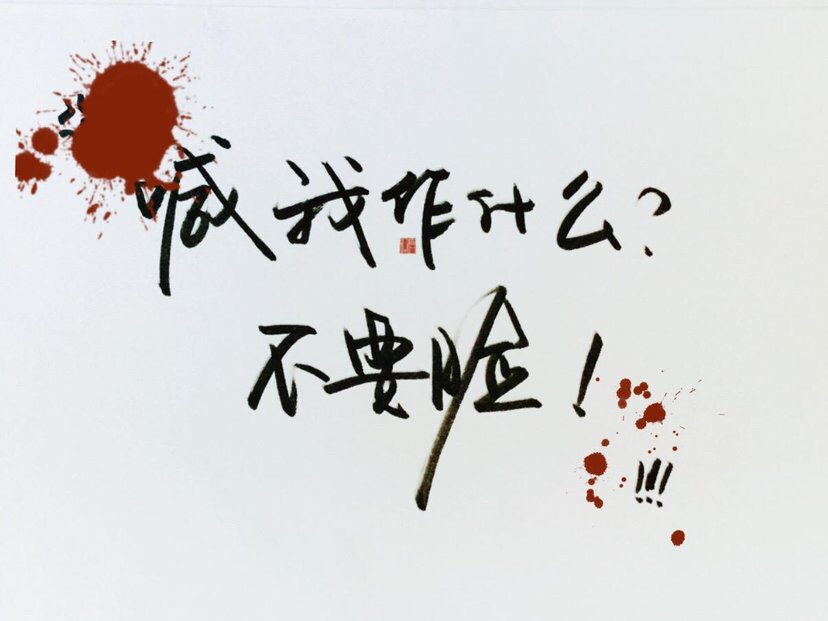 喊我作什么？
不要脸！
!!!